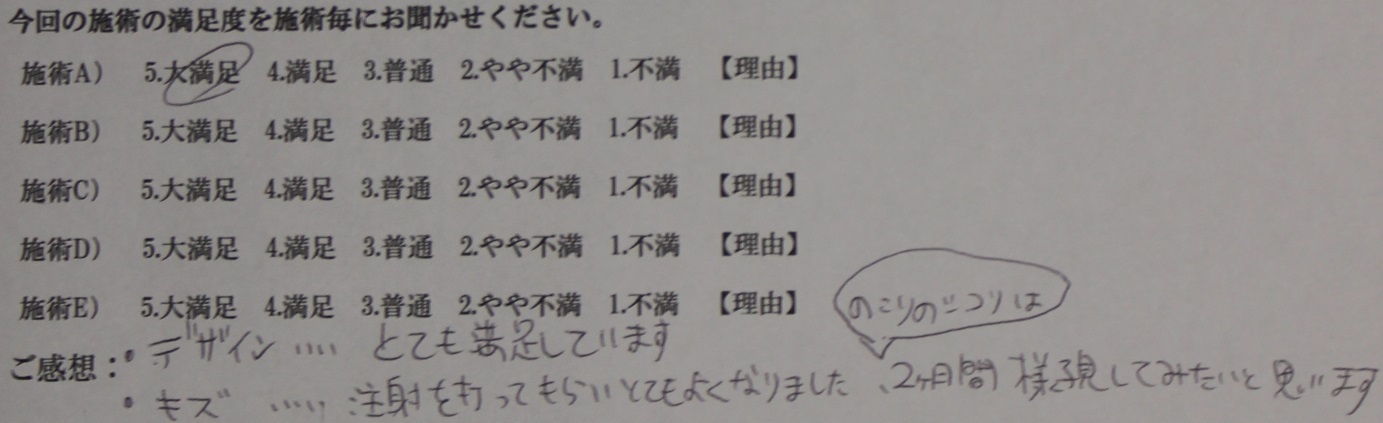 今回の施術の満足度を施術毎にお聞かせください。
施術A) 5.大満足 4.満足 3.普通 2.やや不満 1.不満 【理由】
施術B) 5.大満足 4.満足 3.普通 2.やや不満 1.不満 【理由】
施術C) 5.大満足 4.満足 3.普通 2.やや不満 1.不満 【理由】
施術D) 5.大満足 4.満足 3.普通 2.やや不満 1.不満 【理由】
施術E) 5.大満足 4.満足 3.普通 2.やや不満 1.不満 【理由】
のこりのシコリは
ご感想：・デザイン‥‥ とても満足しています
・キズ ‥‥‥ 注射を打ってもらいとてもよくなりました、2ヶ月間 様子見してみたいと思います